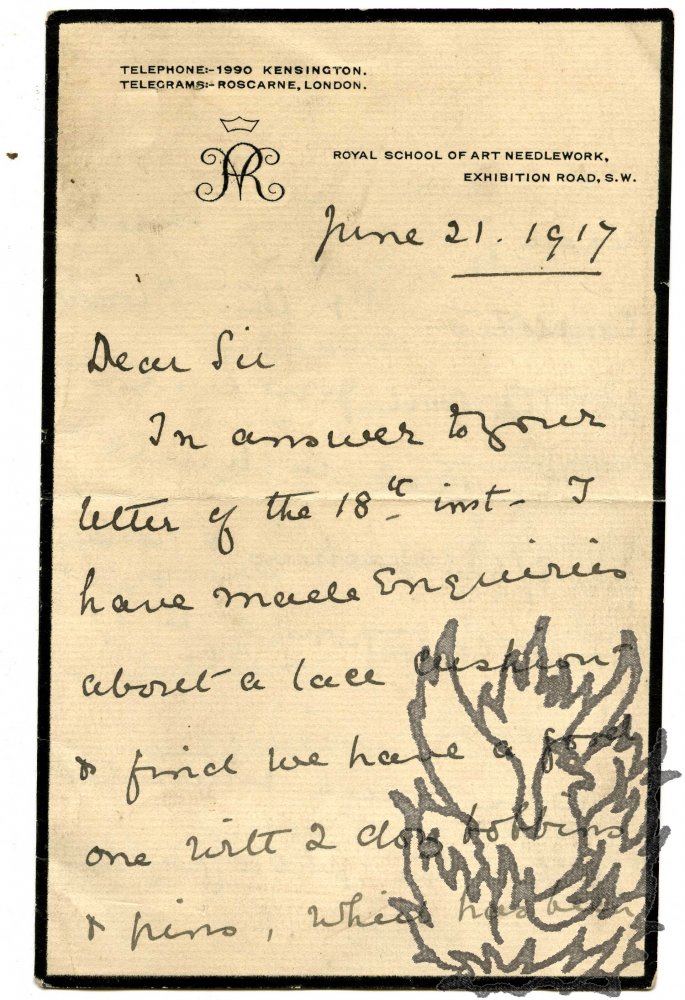 TELEPHONE:-1990 KENSINGTON.
TELEGRAMS:-ROSCARNE, LONDON.
ROYAL SCHOOL OF ART NEEDLEWORK,
EXHIBITION ROAD, S.W.
June 21. 1917
Dear Sir
In answer to your
letter of the 18th inst- I
have made Enquiries
about a lace cushion
& find we have a good
one with 2 doz bobbins
& pins, which has been